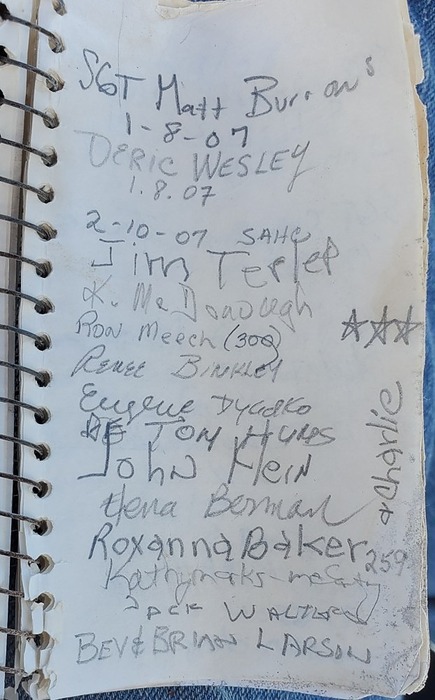 SGT Matt Burrows
1-8-07
DERIC WESLEY
1.8.07
2-10-07 SAHC
Jim
K. McDonough
RON Meech (300)
RENEE BINKLEY
Eugene
TOM
John Hein
Elena Berman
& Charlie
Roxanna Baker 259
Kathy
JACK WALTERS
BEV & BRIAN LARSON